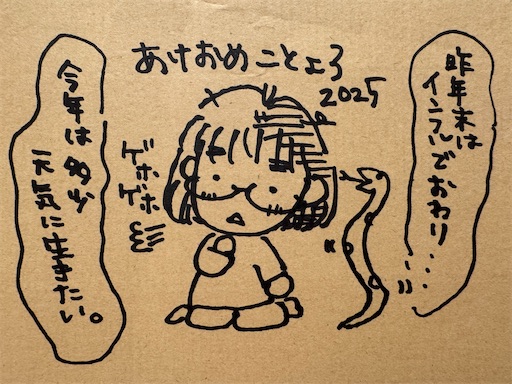 あけおめことよろ
2025
昨年末は
インフルでおわり・・・
ゲホ
ゲホ
今年は多少
元気に生きたい。